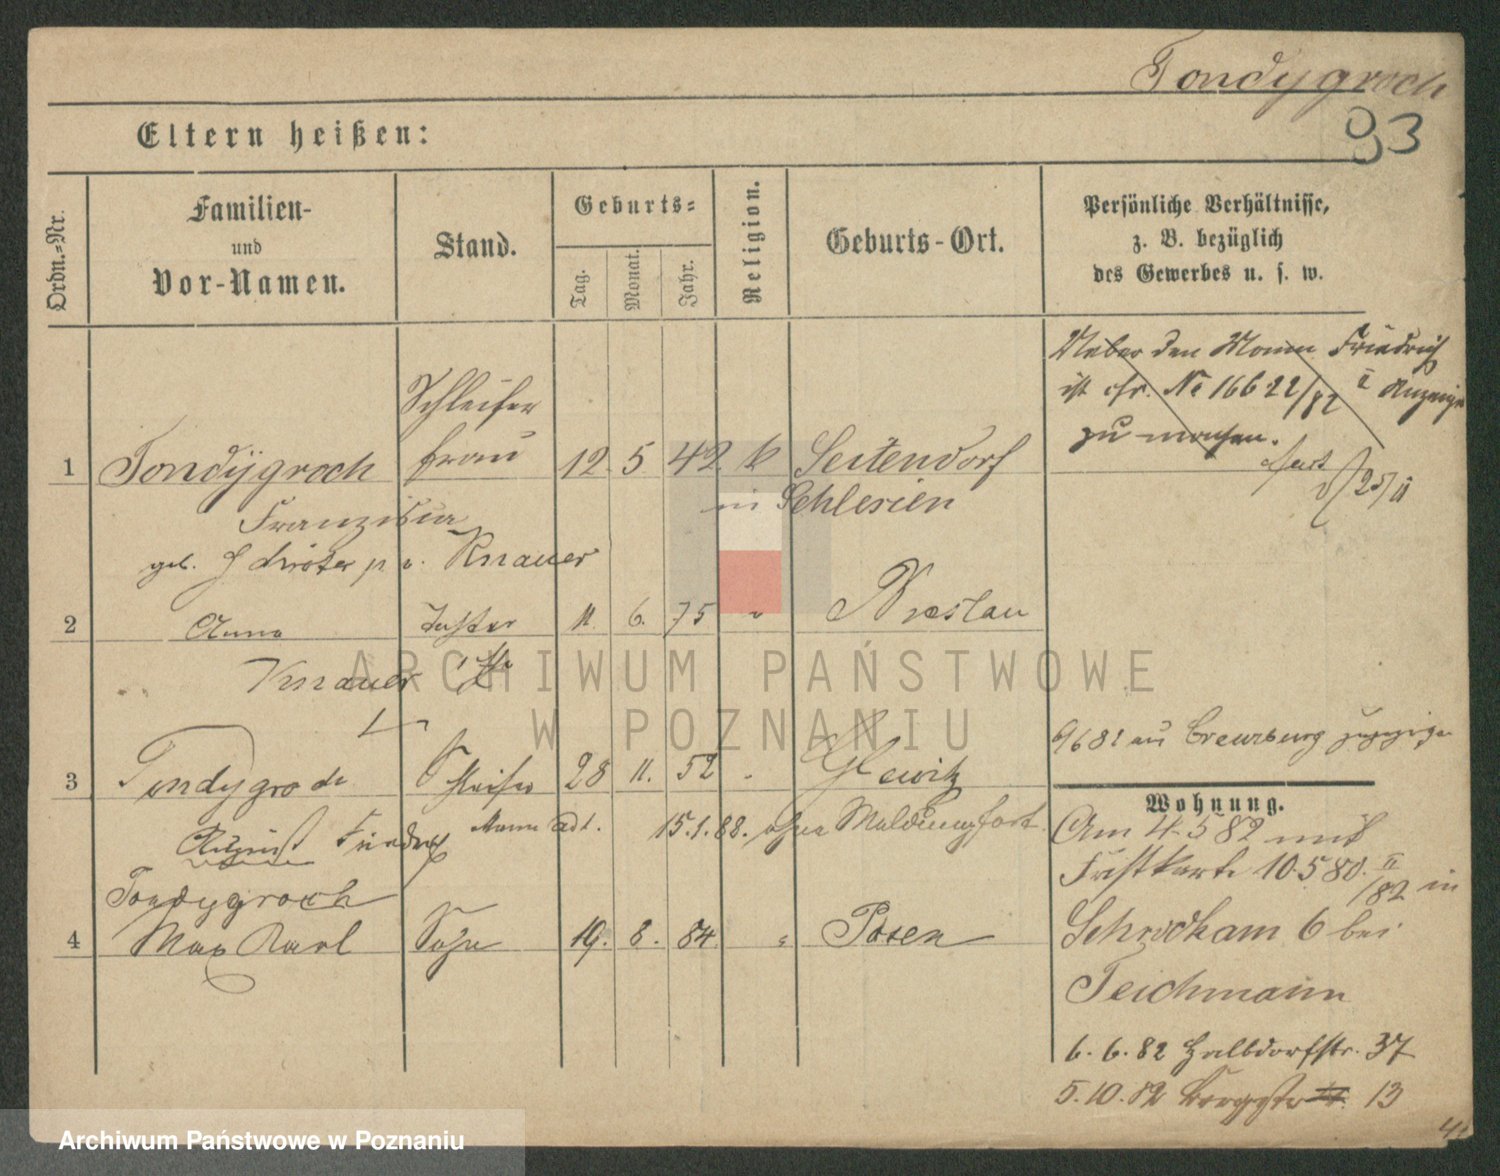 Tondygroch
93
Eltern heißen:
Ordn.-Nr.
Familien-
und
Vor-Namen.
Stand.
Geburts-
Tag.
Monat.
Jahr.
Religion.
Geburts-Ort.
Persönliche Verhältnisse,
z. B. bezüglich
des Gewerbes u. s. w.
Ueber den Mann Friedrich
ist cfr. No 16622/82 II Anzeige
zu machen.
25/II
Schleifer
1 Tondÿgroch frau 12. 5. 42. k Seitendorf
in Schlesien
Franziska
geb. Knauer
2 Anna Tochter 11. 6. 75 " Breslau
Knauer
9681 aus Creuzburg
3 Tondygroch Schleifer 28 11. 52 "
August Friedrich Mann 15.1.88. ohne Meldung fort
Tondygroch
4 Max Karl Sohn 19. 8. 84 " Posen
Wohnung.
Am 4.5 82 mit
Fristkarte 10580. II/82 in
Schrodkam 6 bei
Teichmann
6. 6. 82 Halbdorfstr. 37
5. 10. 82 Bergstr 13
ARCHIWUM PAŃSTWOWE
W POZNANIU
Archiwum Państwowe w Poznaniu